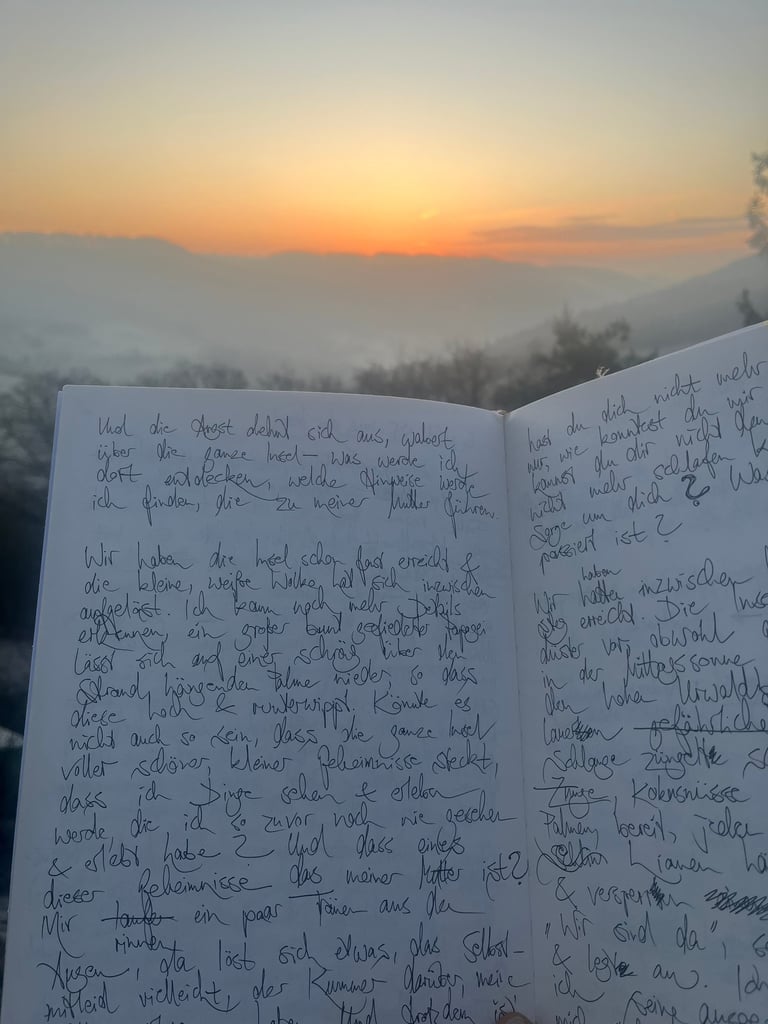 Und die Angst dehnt sich aus, wabert
über die ganze Insel – was werde ich
dort entdecken, welche Hinweise werde
ich finden, die zu meiner Mutter führen.
Wir haben die Insel schon fast erreicht &
die kleine, weiße Wolke hat sich inzwischen
aufgelöst. Ich kann noch mehr Details
erkennen, ein großer bunt gefiederter Papagei
lässt sich auf einer schräg über den
Strand hängenden Palme nieder, so dass
diese hoch & runterwippt. Könnte es
nicht auch so sein, dass die ganze Insel
voller schöner, kleiner Geheimnisse steckt,
dass ich Dinge sehen & erleben
werde, die ich so zuvor noch nie gesehen
& erlebt habe? Und dass eines
dieser Geheimnisse das meiner Mutter ist?
Mir laufen ein paar Tränen aus den
rinnen
Augen, da löst sich etwas, das Selbst-
mitleid vielleicht, der Kummer darüber, mein
Und trotzdem
hast du dich nicht mehr
nur, wie konntest du mir
kannst du dir nicht den
nicht mehr schlafen
Sorge um dich? Was
passiert ist?
haben
Wir hatten inzwischen
erreicht. Die Insel
düster vor, obwohl
in der Mittagssonne
den hohen Urwald
lauern gefährliche
Schlange züngelt
Zunge, Kokosnüsse
Palmen, bereit, jeden
Lianen
& versperren
"Wir sind da",
& legt an. Ich
ich
mich seine